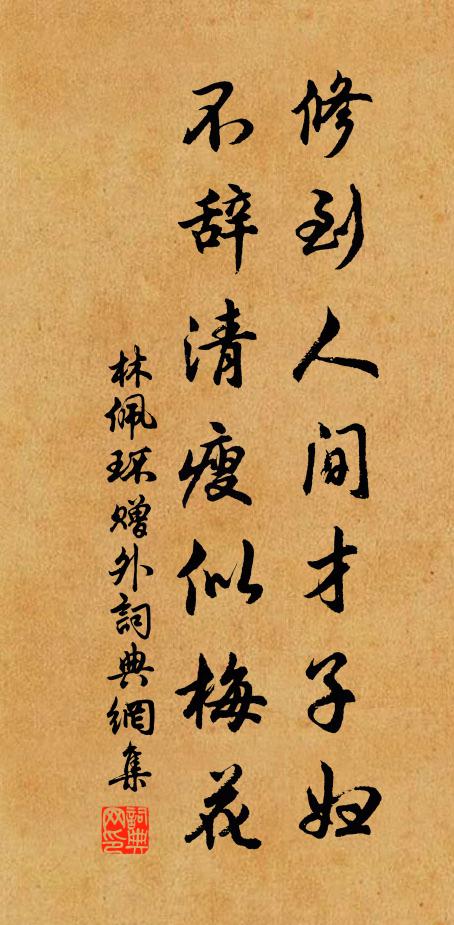 修到人间才子妇
不辞清瘦似梅花
林佩环赠外詞典網集
詞典网印